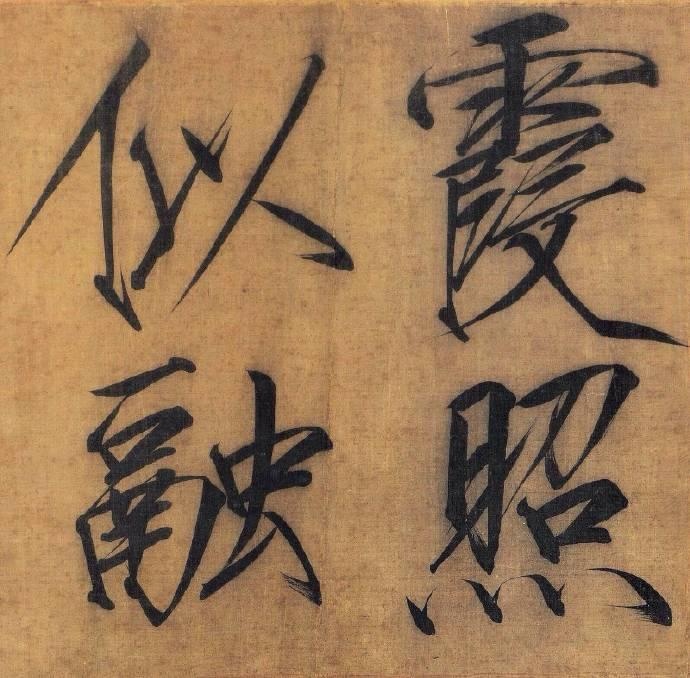 霞照
似融